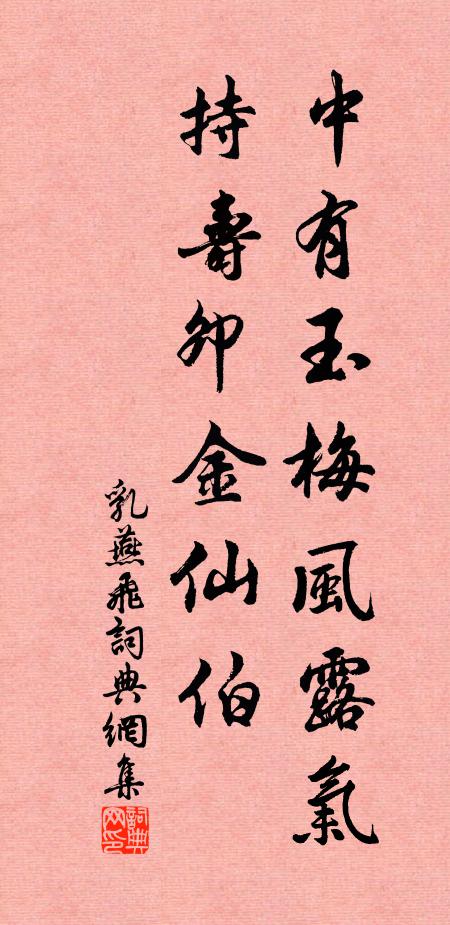 中有玉梅風露氣
持壽卯金仙伯
乳燕飛詞典網集
詞典网印